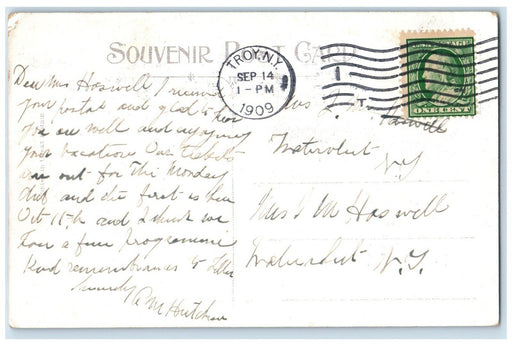 SOUVENIR POST CARD
TROY, N.Y.
SEP 14
1 - PM
1909
ONE CENT
Dear Mrs Haswell I
your postal and glad to hear
you are well and enjoying
your vacation Our tickets
are out for the Monday
and the first is
Oct 11th and I must
a fine Programme
Kind remembrances to
Sincerely
A M
Haswell
Watervliet
N.Y.
Mrs I M Haswell
Watervliet N.Y.